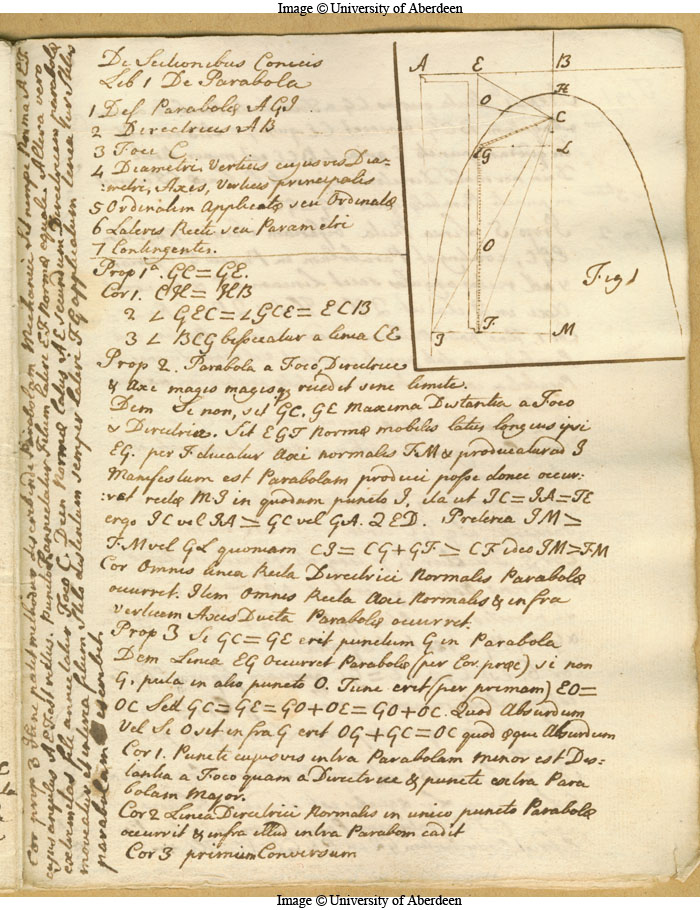 Image © University of Aberdeen
De Sectionibus Conicis
Lib 1 De Parabola
1 Def Parabolæ AGI
2 Directricis AB
3 Foci C
4 Diametri, Verticis cujusvis Dia-
:metri, Axis, Verticis principalis
5 Ordinatim Applicatæ seu Ordinatæ
6 Lateris Recti seu Parametri
7 Contingentis.
Prop 1ª. GC = GE.
Cor 1. CH = HB
2 ∠ GEC = ∠ GCE = ECB
3 ∠ BCG bissecatur a linea CE
Prop 2. Parabola a Foco, Directrice
& Axe magis magisq recedit sine limite.
Dem Si non, sit GC, GE Maxima Distantia a Foco
& Directrice. Sit EGF Normæ mobilis latus longius ipsi
EG. per F ducatur Axi normalis FM & producatur ad I
Manifestum est Parabolam produci posse donec occur-
:rat rectæ MI in quodam puncto I, ita ut IC = IA = FE
ergo IC vel IA > GC vel GA. QED. Preterea IM >
FM vel GL quoniam CI = CG + GF > CF ideo IM > FM
Cor Omnis linea Recta Directrici Normalis Parabolæ
occurret. Item Omnis Recta Axi Normalis & infra
verticem Axis Ducta Parabolæ occurret.
Prop 3 Si GC = GE erit punctum G in Parabola
Dem Linea EG Occurret Parabolæ (per Cor. præc) si non
G, puta in alio puncto O. Tunc erit (per primam) EO =
OC Sed GC = GE = GO + OE = GO + OC. Quod Absurdum
Vel Si O sit infra G erit OG + GC = OC quod æque Absurdum
Cor 1. Puncti cujusvis intra Parabolam minor est Dis-
tantia a Foco quam a Directrice & puncti extra Para
bolam Major.
Cor 2 Linea Directrici Normalis in unico puncto Parabolæ
occurrit & infra illud intra Parabom cadit
Cor 3 primium Conversum
A E B
H
O C
G L
O
Fig 1
I F M
Cor prop 3 Hinc patet methodus describendi Parabolam Mechanice
cujus angulus AEF sit rectus.
extremitas fili annectatur Foco C. Dein Normæ latus AE secundum Directricem
moveatur & interea filum Stilo distentum semper lateri FG applicatum
parabolam describet.
Image © University of Aberdeen